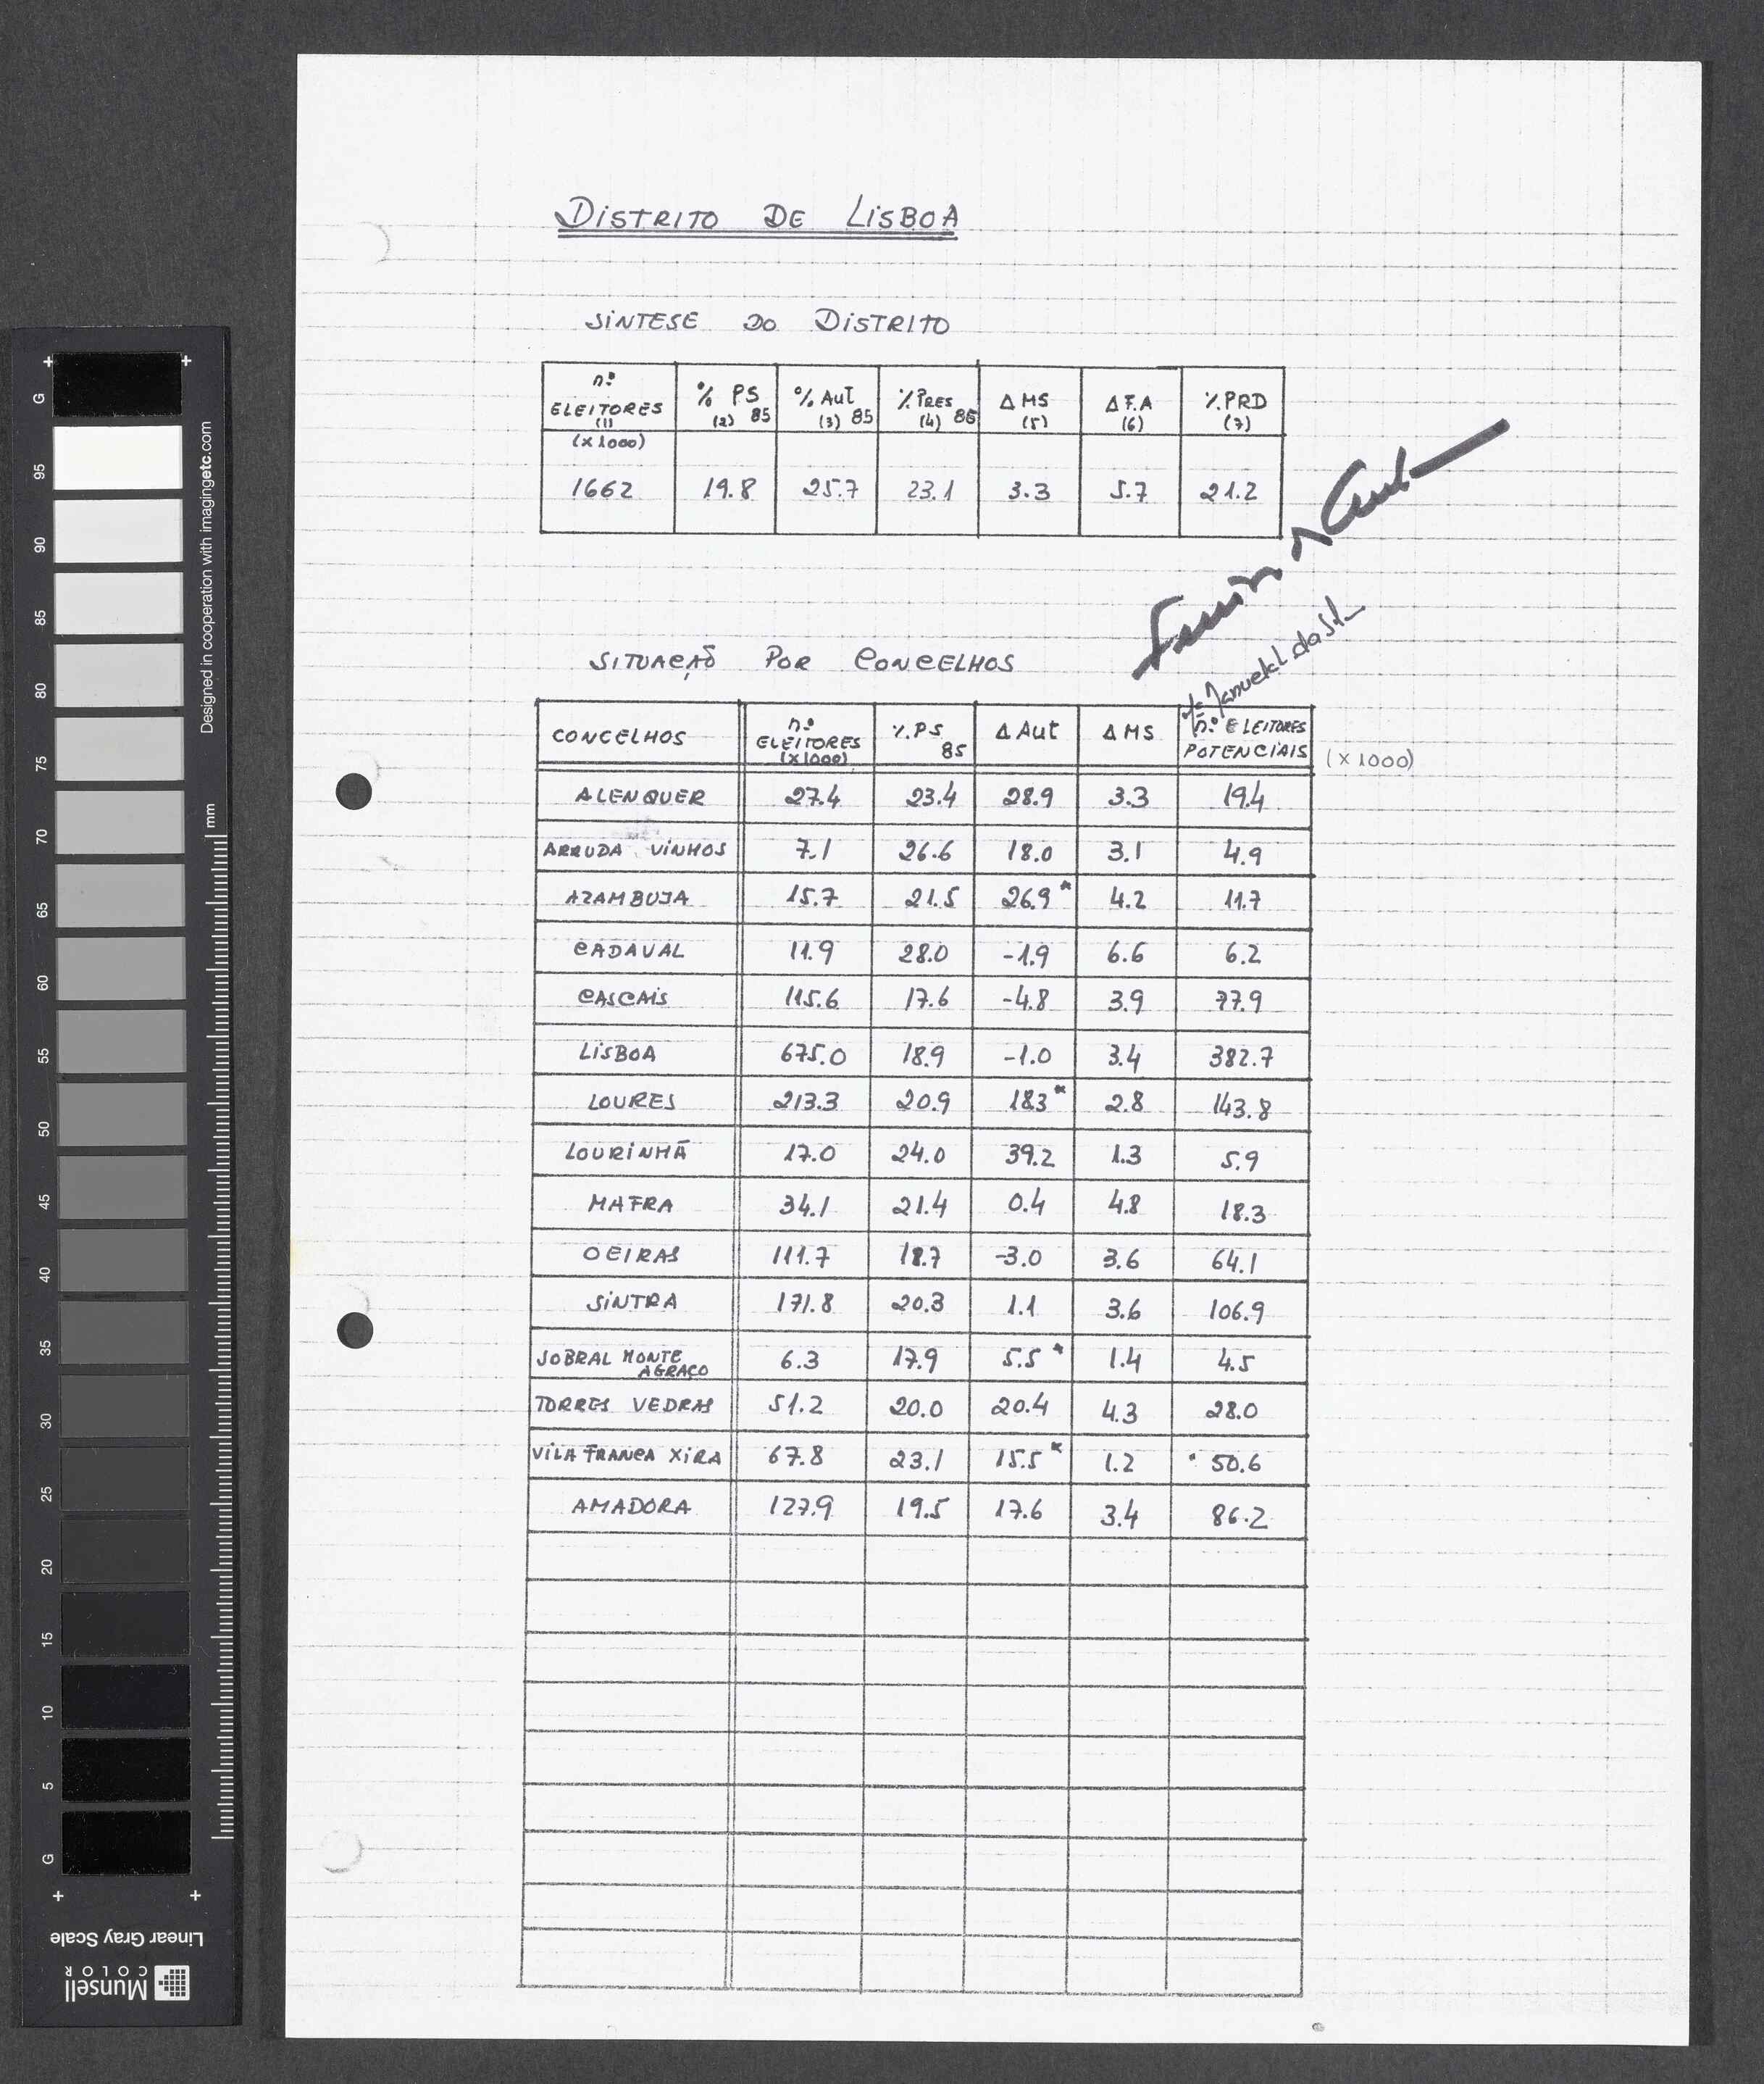 DISTRITO DE LISBOA
SINTESE DO DISTRITO
n.º ELEITORES (1) % PS (2) 85 % AUT (3) 85 % PRES (4) 86 Δ MS (5) Δ F.A (6) % PRD (7)
(x 1000)
1662 19.8 25.7 23.1 3.3 5.7 21.2
Manuel da
SITUAÇÃO POR CONCELHOS
CONCELHOS n.º ELEITORES (x1000) % PS 85 Δ AUT Δ MS n.º ELEITORES POTENCIAIS (x 1000)
ALENQUER 27.4 23.4 28.9 3.3 19.4
ARRUDA VINHOS 7.1 26.6 18.0 3.1 4.9
AZAMBUJA 15.7 21.5 26.9* 4.2 11.7
CADAVAL 11.9 28.0 -1.9 6.6 6.2
CASCAIS 115.6 17.6 -4.8 3.9 77.9
LISBOA 675.0 18.9 -1.0 3.4 382.7
LOURES 213.3 20.9 18.3* 2.8 143.8
LOURINHÃ 17.0 24.0 39.2 1.3 5.9
MAFRA 34.1 21.4 0.4 4.8 18.3
OEIRAS 111.7 18.7 -3.0 3.6 64.1
SINTRA 171.8 20.3 1.1 3.6 106.9
SOBRAL MONTE AGRAÇO 6.3 17.9 5.5* 1.4 4.5
TORRES VEDRAS 51.2 20.0 20.4 4.3 28.0
VILA FRANCA XIRA 67.8 23.1 15.5* 1.2 50.6
AMADORA 127.9 19.5 17.6 3.4 86.2
G 95 90 85 80 75 70 65 60 55 50 45 40 35 30 25 20 15 10 5 G
mm
Designed in cooperation with imagingetc.com
Linear Gray Scale
Munsell
COLOR